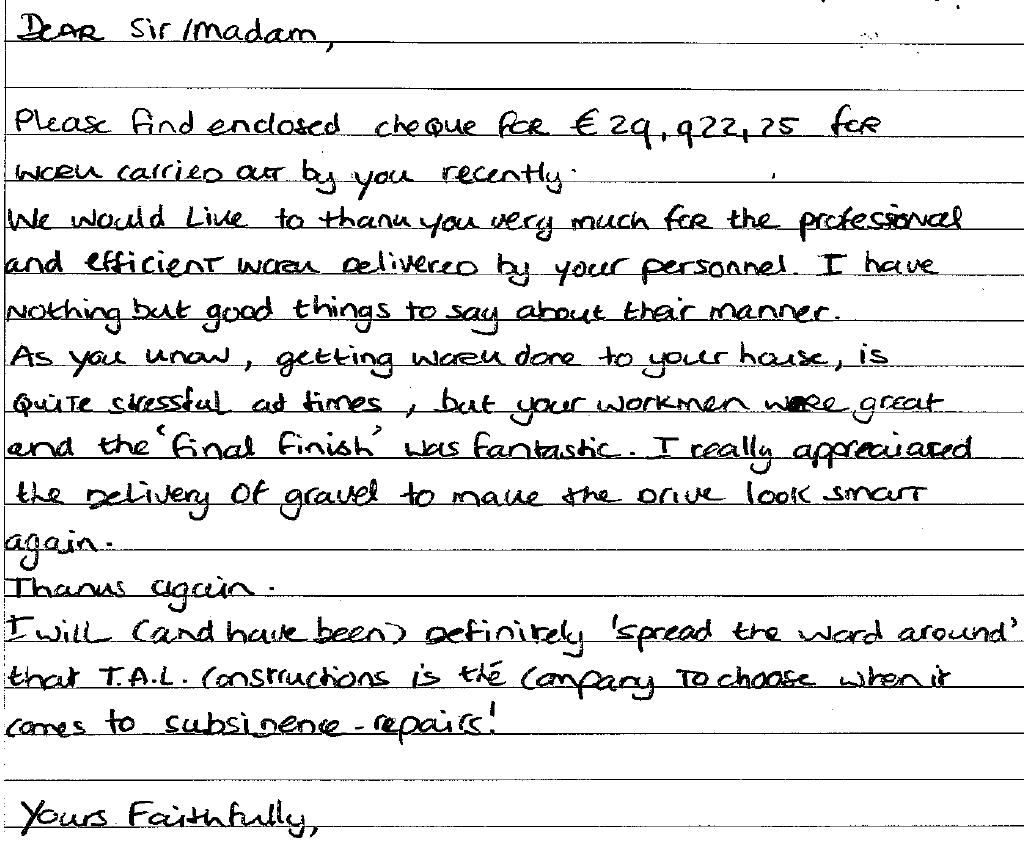 Dear Sir/Madam,
Please find enclosed cheque for € 29,922,25 for
work carried out by you recently.
We would like to thank you very much for the professional
and efficient work delivered by your personnel. I have
nothing but good things to say about their manner.
As you know, getting work done to your house, is
quite stressful at times, but your workmen were great
and the 'final finish' was fantastic. I really appreciated
the delivery of gravel to make the drive look smart
again.
Thanks again.
I will (and have been) definitely 'spread the word around'
that T.A.L. Constructions is thé company to choose when it
comes to subsidence-repairs!
Yours Faithfully,